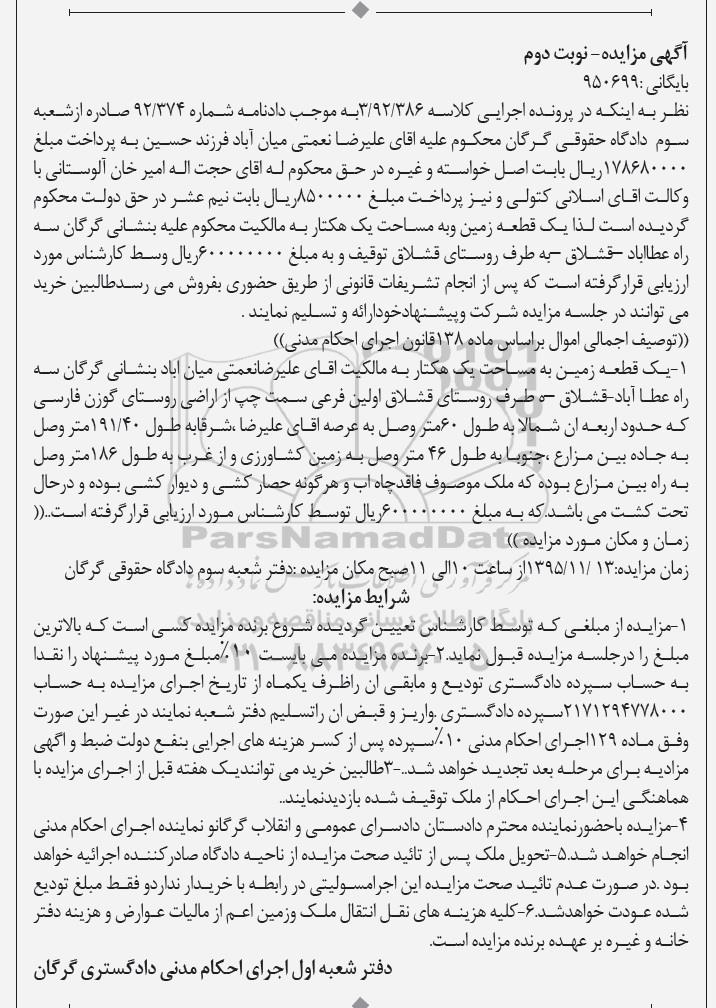 آگهی مزایده- نوبت دوم
بایگانی :۹۵۰۶۹۹
نظر به اینکه در پرونده اجرایی کلاسه ۳/۹۲/۳۸۶به موجب دادنامه شماره ۹۲/۳۷۴ صادره ازشعبه
سوم دادگاه حقوقی گرگان محکوم علیه اقای علیرضا نعمتی میان آباد فرزند حسین به پرداخت مبلغ
۱۷۸۶۸۰۰۰۰ریال بابت اصل خواسته و غیره در حق محکوم له اقای حجت اله امیر خان آلوستانی با
وکالت اقای اسلانی کتولی و نیز پرداخت مبلغ ۸۵۰۰۰۰۰ریال بابت نیم عشر در حق دولت محکوم
گردیده است لذا یک قطعه زمین وبه مساحت یک هکتار به مالکیت محکوم علیه بنشانی گرگان سه
راه عطااباد –قشلاق –به طرف روستای قشلاق توقیف و به مبلغ ۶۰۰۰۰۰۰۰۰ریال وسط کارشناس مورد
ارزیابی قرارگرفته است که پس از انجام تشریفات قانونی از طریق حضوری بفروش می رسدطالبین خرید
می توانند در جلسه مزایده شرکت وپیشنهادخودارائه و تسلیم نمایند .
((توصیف اجمالی اموال براساس ماده ۱۳۸قانون اجرای احکام مدنی))
۱-یک قطعه زمین به مساحت یک هکتار به مالکیت اقای علیرضانعمتی میان اباد بنشانی گرگان سه
راه عطا آباد-قشلاق –ه طرف روستای قشلاق اولین فرعی سمت چپ از اراضی روستای گوزن فارسی
که حدود اربعه ان شمالا به طول ۶۰متر وصل به عرصه اقای علیرضا ،شرقابه طول ۱۹۱/۴۰متر وصل
به جاده بین مزارع ،جنوبا به طول ۴۶ متر وصل به زمین کشاورزی و از غرب به طول ۱۸۶متر وصل
به راه بین مزارع بوده که ملک موصوف فاقدچاه اب و هرگونه حصار کشی و دیوار کشی بوده و درحال
تحت کشت می باشد.که به مبلغ ۶۰۰۰۰۰۰۰۰ریال توسط کارشناس مورد ارزیابی قرارگرفته است..((
زمان و مکان مورد مزایده ))
زمان مزایده:۱۳ /۱۳۹۵/۱۱از ساعت ۱۰الی ۱۱صبح مکان مزایده :دفتر شعبه سوم دادگاه حقوقی گرگان
شرایط مزایده:
۱-مزایده از مبلغی که توسط کارشناس تعیین گردیده شروع برنده مزایده کسی است که بالاترین
مبلغ را درجلسه مزایده قبول نماید.۲-برنده مزایده می بایست ۱۰٪مبلغ مورد پیشنهاد را نقدا
به حساب سپرده دادگستری تودیع و مابقی ان راظرف یکماه از تاریخ اجرای مزایده به حساب
۲۱۷۱۲۹۴۷۷۸۰۰۰سپرده دادگستری .واریز و قبض ان راتسلیم دفتر شعبه نمایند در غیر این صورت
وفق ماده ۱۲۹اجرای احکام مدنی ۱۰٪سپرده پس از کسر هزینه های اجرایی بنفع دولت ضبط و اگهی
مزادیه برای مرحله بعد تجدید خواهد شد..-۳طالبین خرید می توانندیک هفته قبل از اجرای مزایده با
هماهنگی این اجرای احکام از ملک توقیف شده بازدیدنمایند..
۴-مزایده باحضورنماینده محترم دادستان دادسرای عمومی و انقلاب گرگانو نماینده اجرای احکام مدنی
انجام خواهد شد.۵-تحویل ملک پس از تائید صحت مزایده از ناحیه دادگاه صادرکننده اجرائیه خواهد
بود .در صورت عدم تائید صحت مزایده این اجرامسولیتی در رابطه با خریدار نداردو فقط مبلغ تودیع
شده عودت خواهدشد.۶-کلیه هزینه های نقل انتقال ملک وزمین اعم از مالیات عوارض و هزینه دفتر
خانه و غیره بر عهده برنده مزایده است.
دفتر شعبه اول اجرای احکام مدنی دادگستری گرگان
ParsNamadData
پایگاه اطلاع رسانی مناقصه و مزایده